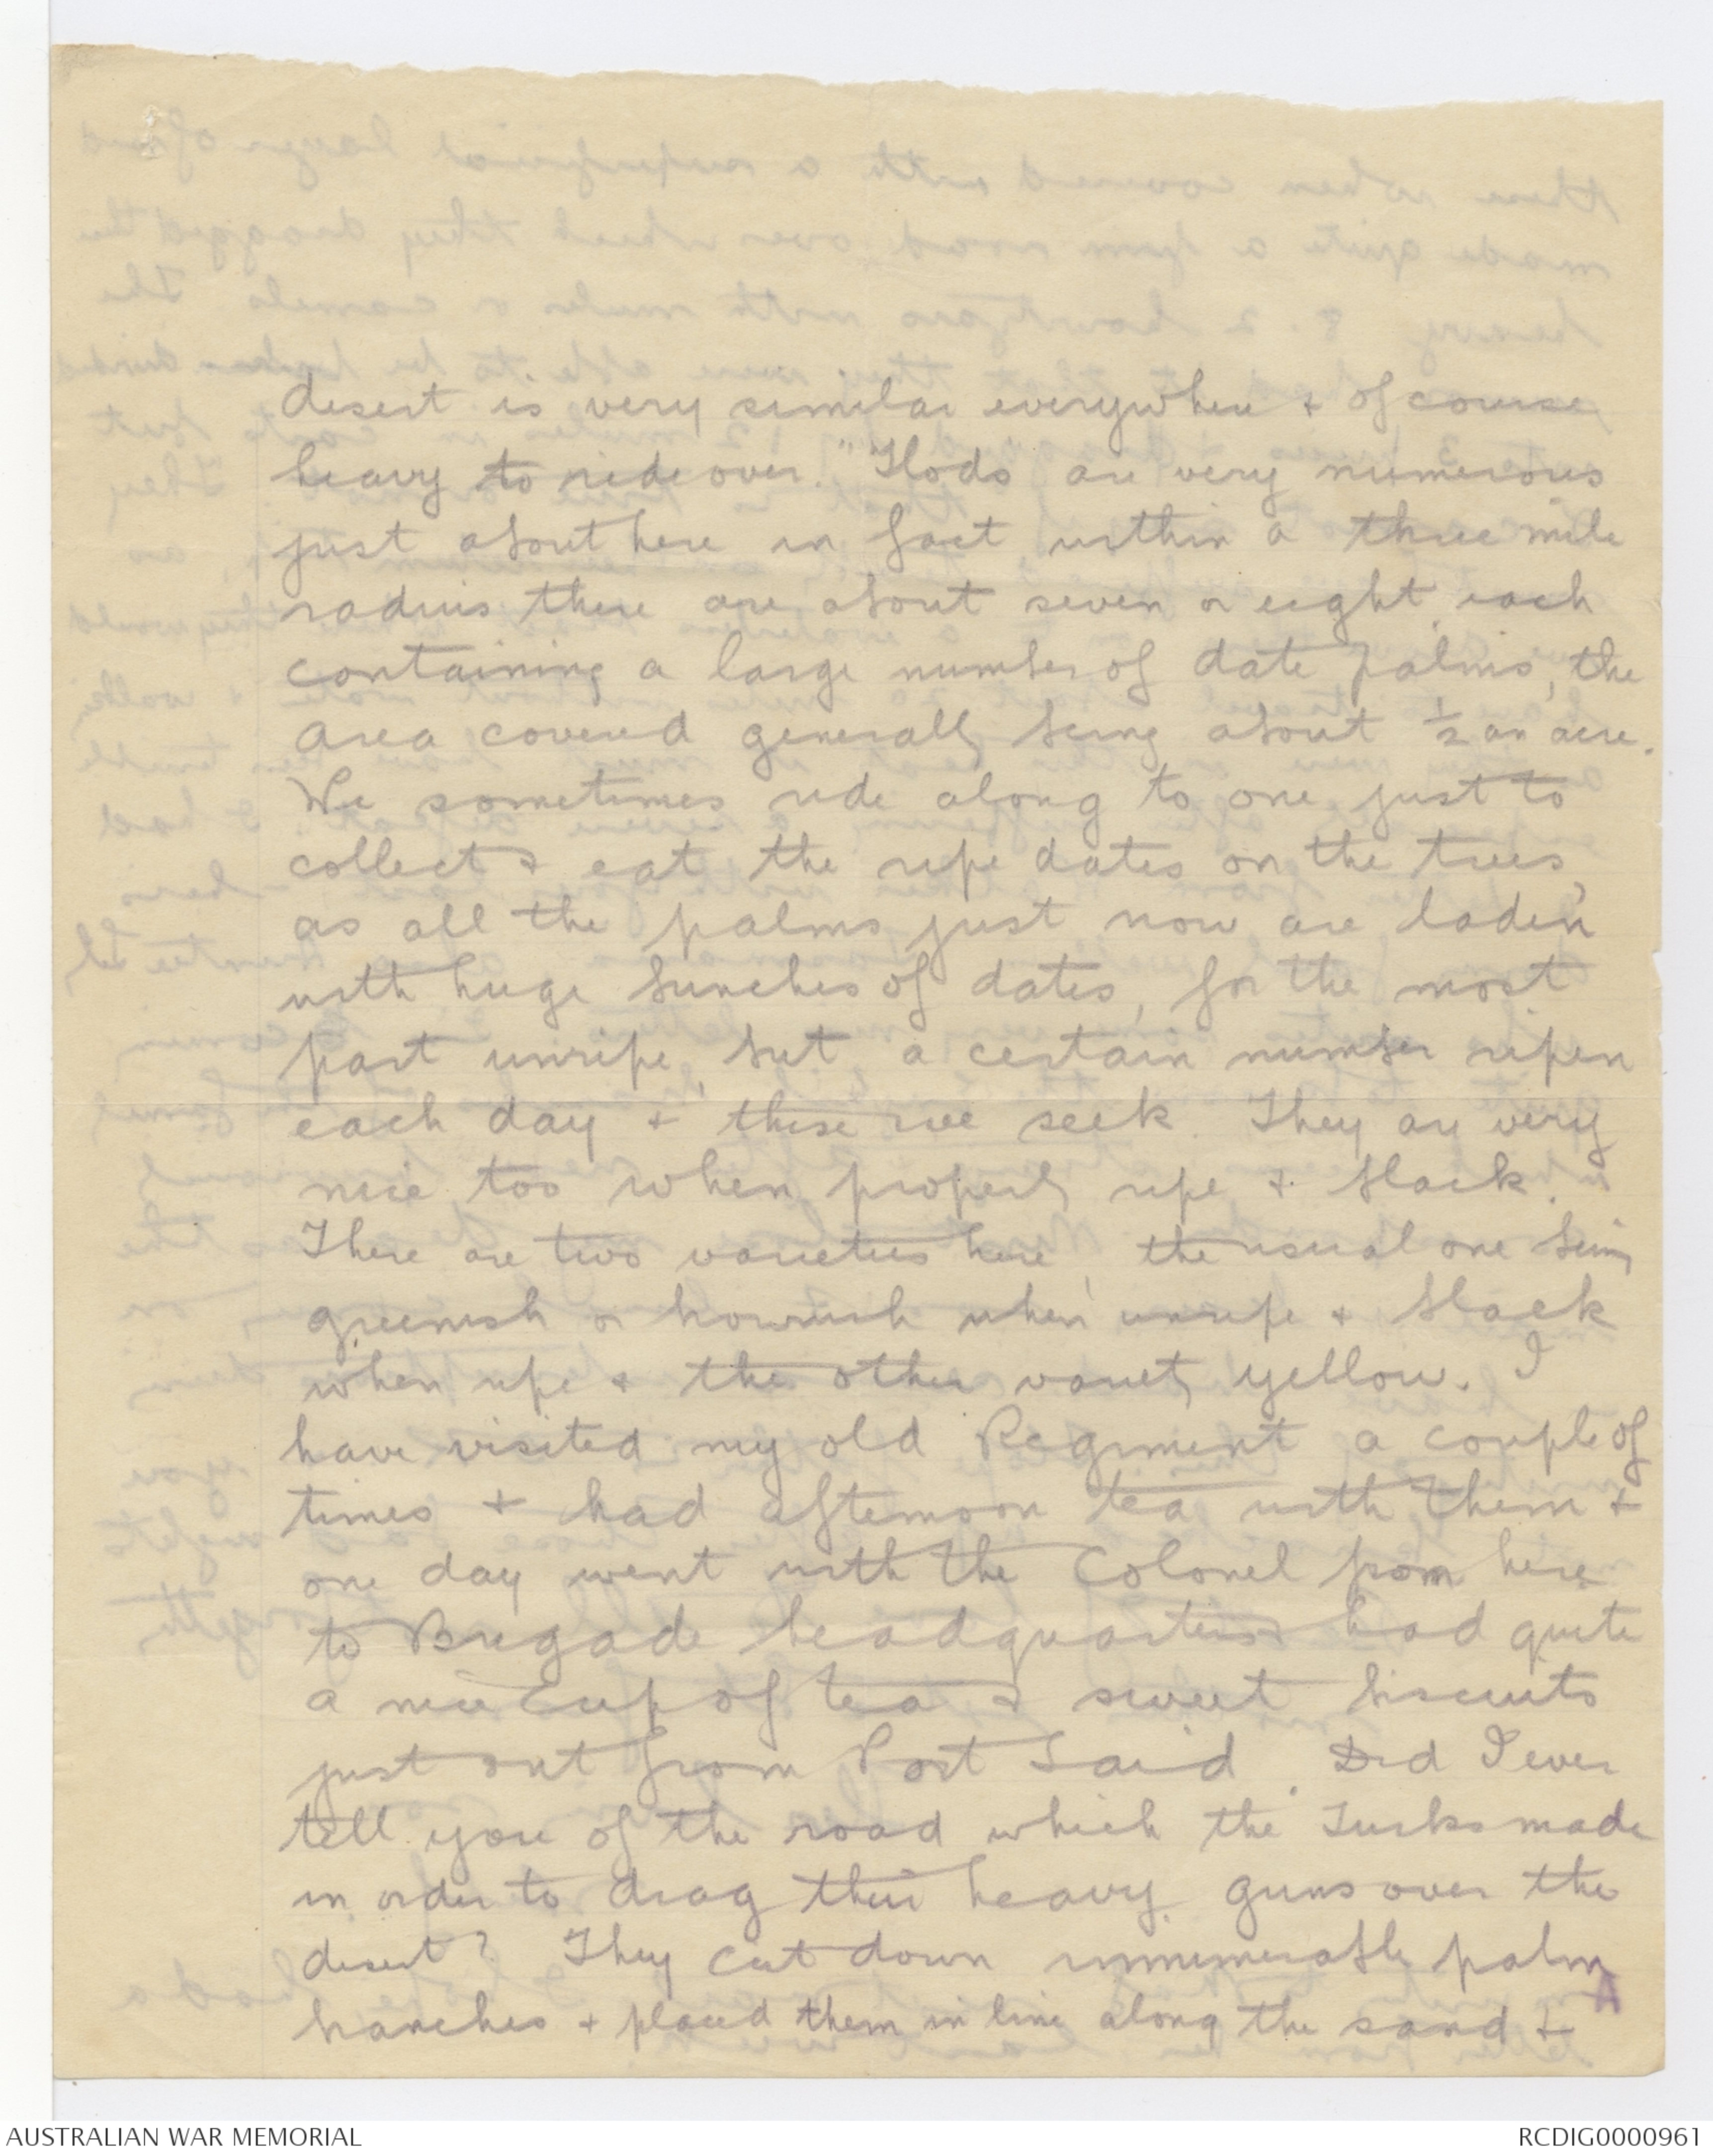 desert is very similar everywhere + of course
heavy to ride over. "Hods" are very numerous
just about here in fact within a three mile
radius there are about seven or eight, each
containing a large number of date palms, the
area covered generally being about ½ an acre.
We sometimes ride along to one just to
collect & eat the ripe dates on the trees,
as all the palms just now are laden
with huge bunches of dates, for the most
part unripe, but a certain number ripen
each day + these we seek. They are very
nice too when properly ripe + black.
There are two varieties here, the usual one being
greenish or brownish when unripe + black
when ripe & the other variety yellow. I
have visited my old Regiment a couple of
times + had afternoon tea with them +
one day went with the Colonel from here
to Brigade headquarters & had quite
a nice cup of tea & sweet biscuits
just out from Port Said. Did I ever
tell you of the road which the Turks made
in order to drag their heavy guns over the
desert? They cut down innumerable palm
branches + placed them in line along the sand +
AUSTRALIAN WAR MEMORIAL
RCDIG0000961